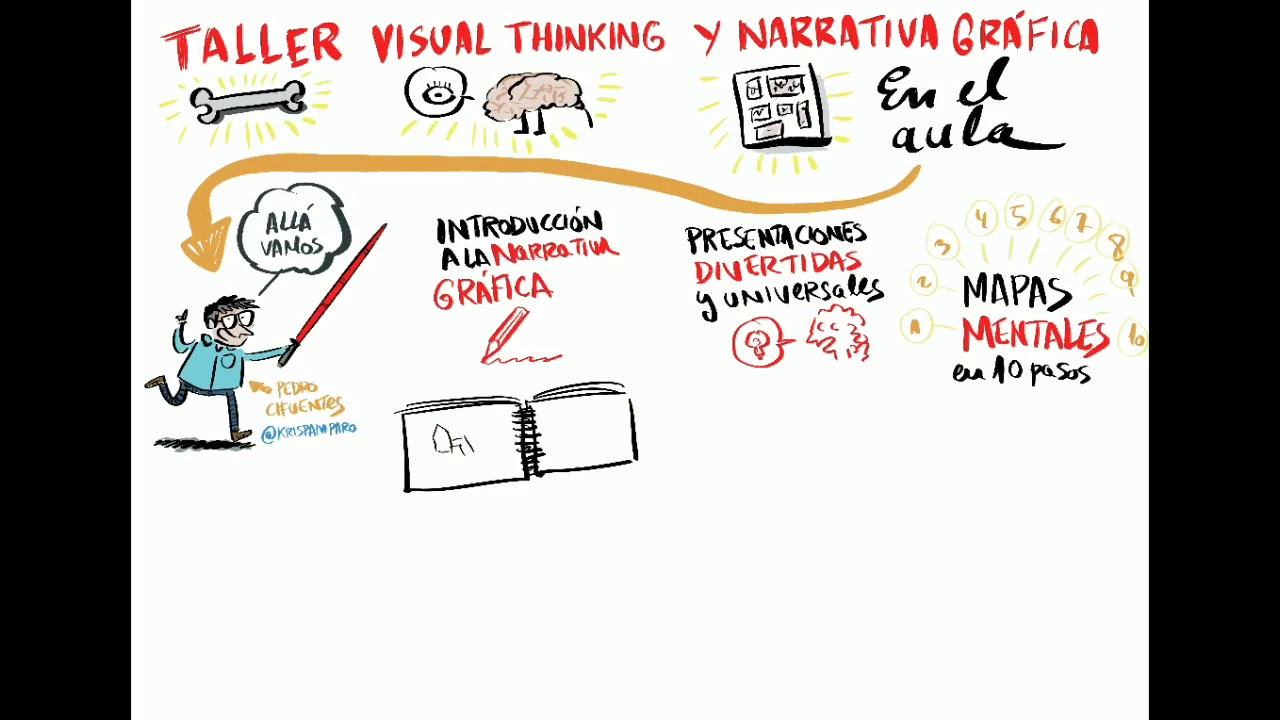 TALLER VISUAL THINKING Y NARRATIVA GRÁFICA
En el
aula
ALLÁ
VAMOS
PEDRO
CIFUENTES
@KRISPAMPARO
INTRODUCCIÓN
A LA NARRATIVA
GRÁFICA
PRESENTACIONES
DIVERTIDAS
y universales
1 2 3 4 5 6 7 8 9 10
MAPAS
MENTALES
en 10 pasos